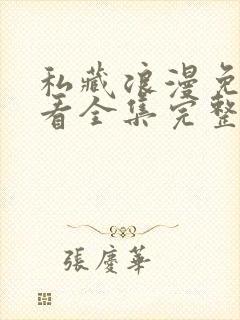 私藏浪漫免
看全集完整
張慶華